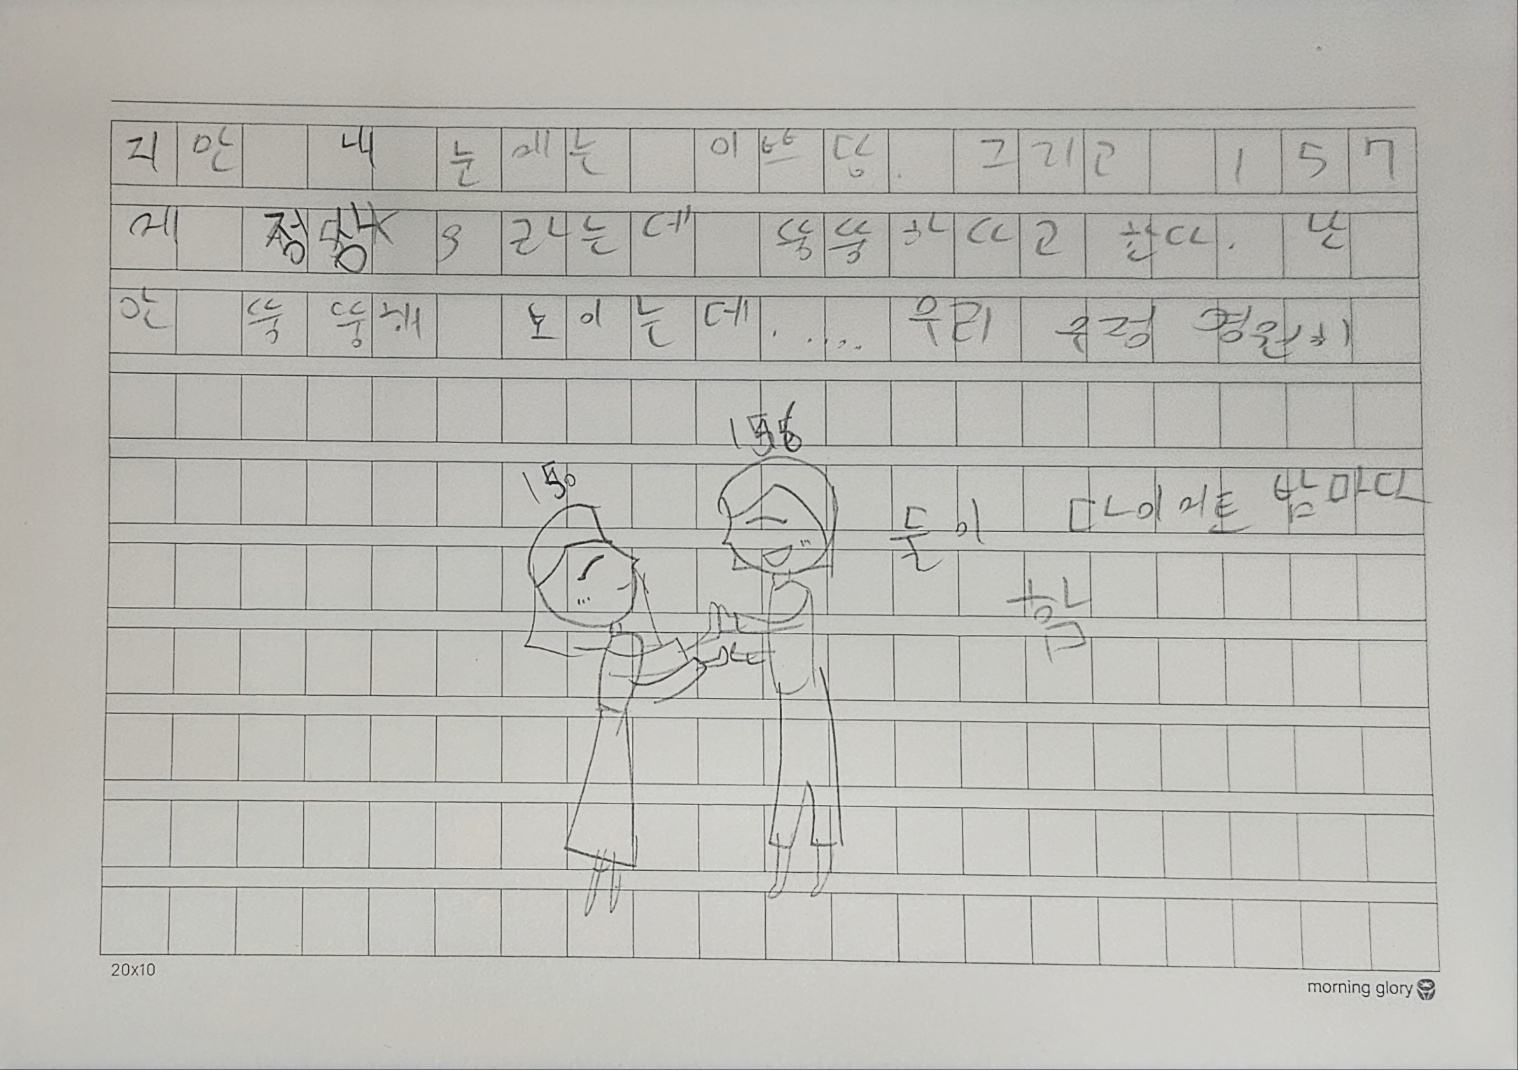 지만 내 눈에는 이쁘담. 그리고 157
에 정상 으라는데 뚱뚱하다고 한다. 난
안 뚱뚱해 보이는데.....  우리 우정 영원히
156
150
둘이 다이어트 밤마다
함
20x10
morning glory